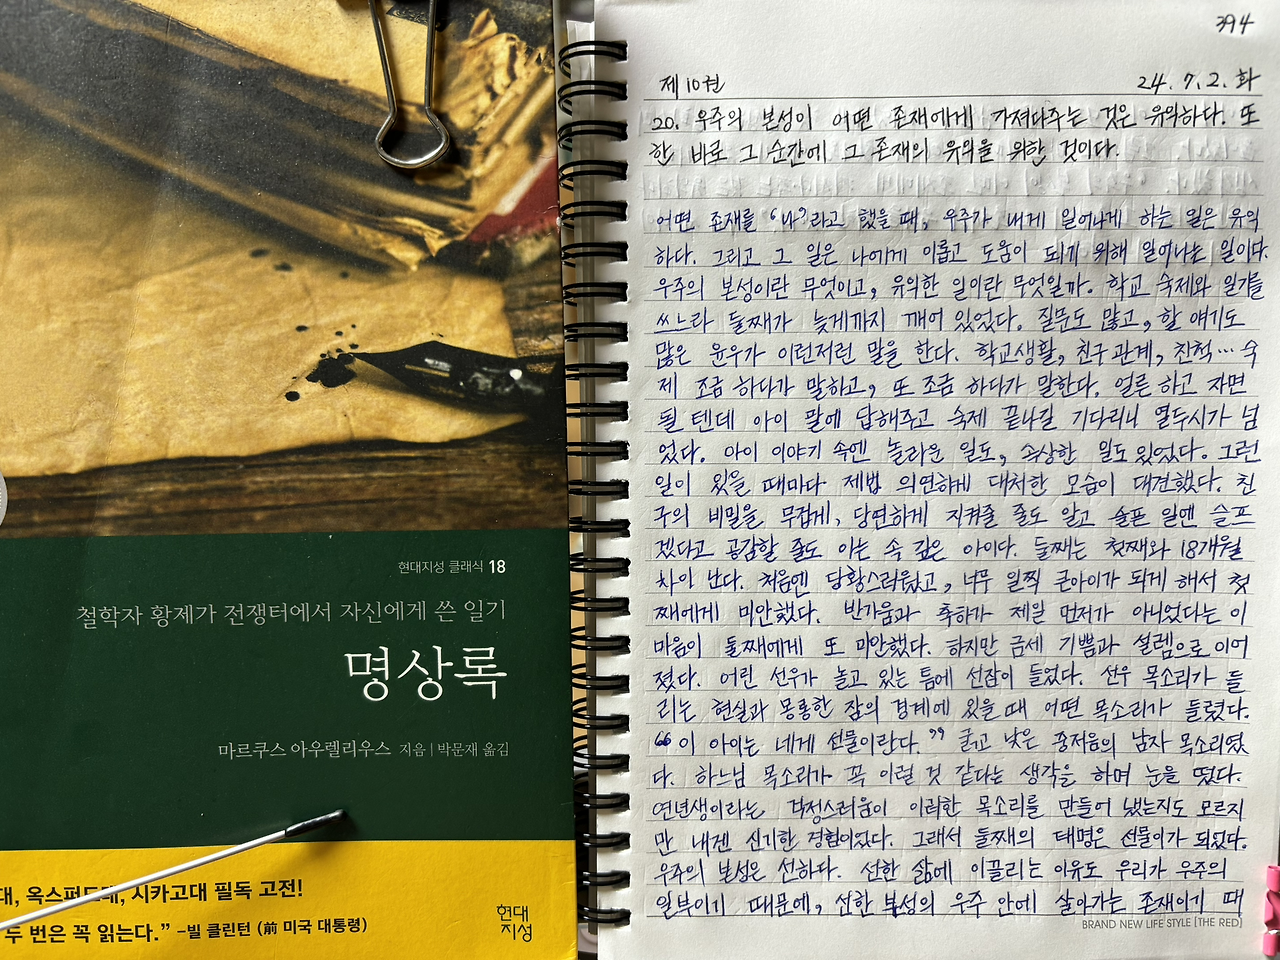 현대지성 클래식 18
철학자 황제가 전쟁터에서 자신에게 쓴 일기
명상록
마르쿠스 아우렐리우스 지음 | 박문재 옮김
대, 옥스퍼드대, 시카고대 필독 고전!
두 번은 꼭 읽는다.” –빌 클린턴 (前 미국 대통령)
현대
지성
394
제10권 24. 7. 2. 화
20. 우주의 본성이 어떤 존재에게 가져다주는 것은 유익하다. 또
한 바로 그 순간에 그 존재의 유익을 위한 것이다.
어떤 존재를 ‘나’라고 했을 때, 우주가 내게 일어나게 하는 일은 유익
하다. 그리고 그 일은 나에게 이롭고 도움이 되기 위해 일어나는 일이다.
우주의 본성이란 무엇이고, 유익한 일이란 무엇일까. 학교 숙제와 일기를
쓰느라 둘째가 늦게까지 깨어 있었다. 질문도 많고, 할 얘기도
많은 윤우가 이런저런 말을 한다. 학교생활, 친구 관계, 친척… 숙
제 조금 하다가 말하고, 또 조금 하다가 말한다. 얼른 하고 자면
될 텐데 아이 말에 답해주고 숙제 끝나길 기다리니 열두시가 넘
었다. 아이 이야기 속엔 놀라운 일도, 속상한 일도 있었다. 그런
일이 있을 때마다 제법 의연하게 대처한 모습이 대견했다. 친
구의 비밀을 무겁게, 당연하게 지켜줄 줄도 알고 슬픈 일엔 슬프
겠다고 공감할 줄도 아는 속 깊은 아이다. 둘째는 첫째와 18개월
차이 난다. 처음엔 당황스러웠고, 너무 일찍 큰아이가 되게 해서 첫
째에게 미안했다. 반가움과 축하가 제일 먼저가 아니었다는 이
마음이 둘째에게 또 미안했다. 하지만 금세 기쁨과 설렘으로 이어
졌다. 어린 선우가 놀고 있는 틈에 선잠이 들었다. 선우 목소리가 들
리는 현실과 몽롱한 잠의 경계에 있을 때 어떤 목소리가 들렸다.
“이 아이는 네게 선물이란다.” 굵고 낮은 중저음의 남자 목소리였
다. 하느님 목소리가 꼭 이럴 것 같다는 생각을 하며 눈을 떴다.
연년생이라는 걱정스러움이 이러한 목소리를 만들어 냈는지도 모르지
만 내겐 신기한 경험이었다. 그래서 둘째의 태명은 선물이가 되었다.
우주의 본성은 선하다. 선한 삶에 이끌리는 이유도 우리가 우주의
일부이기 때문에, 선한 본성의 우주 안에 살아가는 존재이기 때
BRAND NEW LIFE STYLE [THE RED]